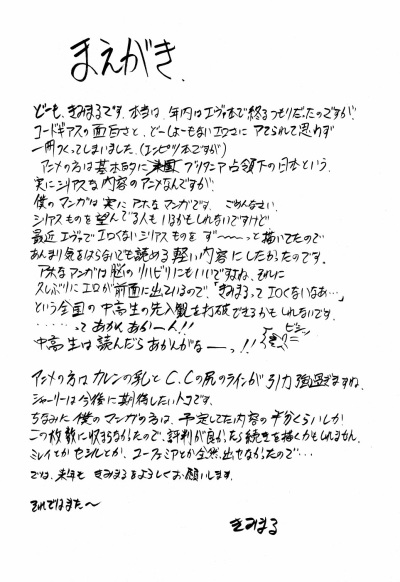 まえがき、
どーも、きみまるです。本当は、年内はエヴァ本で終るつもりだったのですが、
コードギアスの面白さと、どーしょーもないエロさに アテられて思わず
一冊つくってしまいました。(エンピツ本ですが)
アニメの方は基本的に ブリタニア占領下の日本という、
実にシリアスな内容のアニメなんですが、
僕のマンガは実に アホなマンガです。 ごめんなさい。
シリアスものを望んでる人もいるかもしれないですけど
最近 エヴァでエロくないシリアスものを ず〜〜っと描いてたので
あんまり気をはらないでも読める軽い内容にしたかったのです。
アホなマンガは脳のリハビリにもいいですよね、それに
久しぶりにエロが前面に出ているので、「きみまるってエロくないなあ…」
という全国の中高生の先入観を打破できるかもしれないです。
・・・・・って あかん、あかーん!!
中高生は読んだらあかんがなーっ!!
アニメの方は カレンの乳と C.C.の尻のラインが 引力強過ぎますね。
シャーリーは今後に期待したいトコです。
ちなみに僕のマンガの方は、予定してた内容の半分くらいしか
この枚数に収まらなかったので、評判が良かったら続きを描くかもしれません。
ミレイとか セシルとか、ユーフェミアとか全然出せなかったので…
では、来年も きみまるをよろしくお願いします。
それではまた〜
きみまる